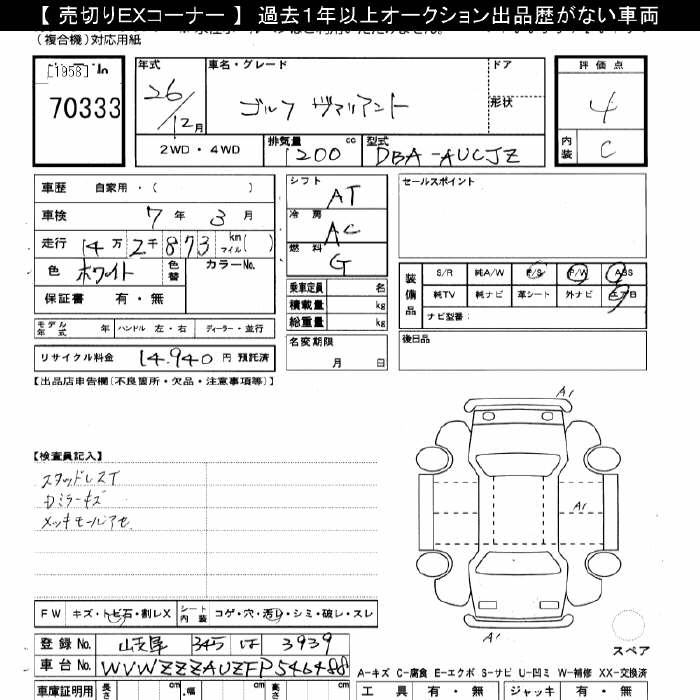 【 売切りEXコーナー 】 過去1年以上オークション出品歴がない車両
(複合機)対応用紙
[1958] No
70333
年式
26/12月
車名・グレード
ゴルフ ヴァリアント
ドア
形状
評価点
4
内装
C
2WD・4WD
排気量 1200 cc
型式 DBA-AUCJZ
車歴 自家用・( )
車検 7年 3月
走行 14万2千873 km マイル( )
色 ホワイト 色替 カラーNo.
保証書 有・無
シフト AT
冷房 AC
燃料 G
乗車定員 名
積載量 kg
総重量 kg
名変期限
月 日
セールスポイント
装備品
S/R 純A/W P/S P/W ABS
純TV 純ナビ 革シート 外ナビ エアB
ナビ型番:
後日品
モデル年式 年 ハンドル 左・右 ディーラー・並行
リサイクル料金 14.940 円 預託済
【出品店申告欄(不良箇所・欠品・注意事項等)】
【検査員記入】
スタッドレスT
Dミラーキズ
メッキモールアセ
A1
A1
A1
スペア
FW キズ・トビ石・割レX シート内装 コゲ・穴・汚レ・シミ・破レ・スレ
登録No. 岐阜 345 は 3939
車台No. WVWZZZAUZFP546488
A-キズ C-腐食 E-エクボ S-サビ U-凹ミ W-補修 XX-交換済
車庫証明用 長さ cm .幅 cm 高さ cm
工具 有・無 ジャッキ 有・無